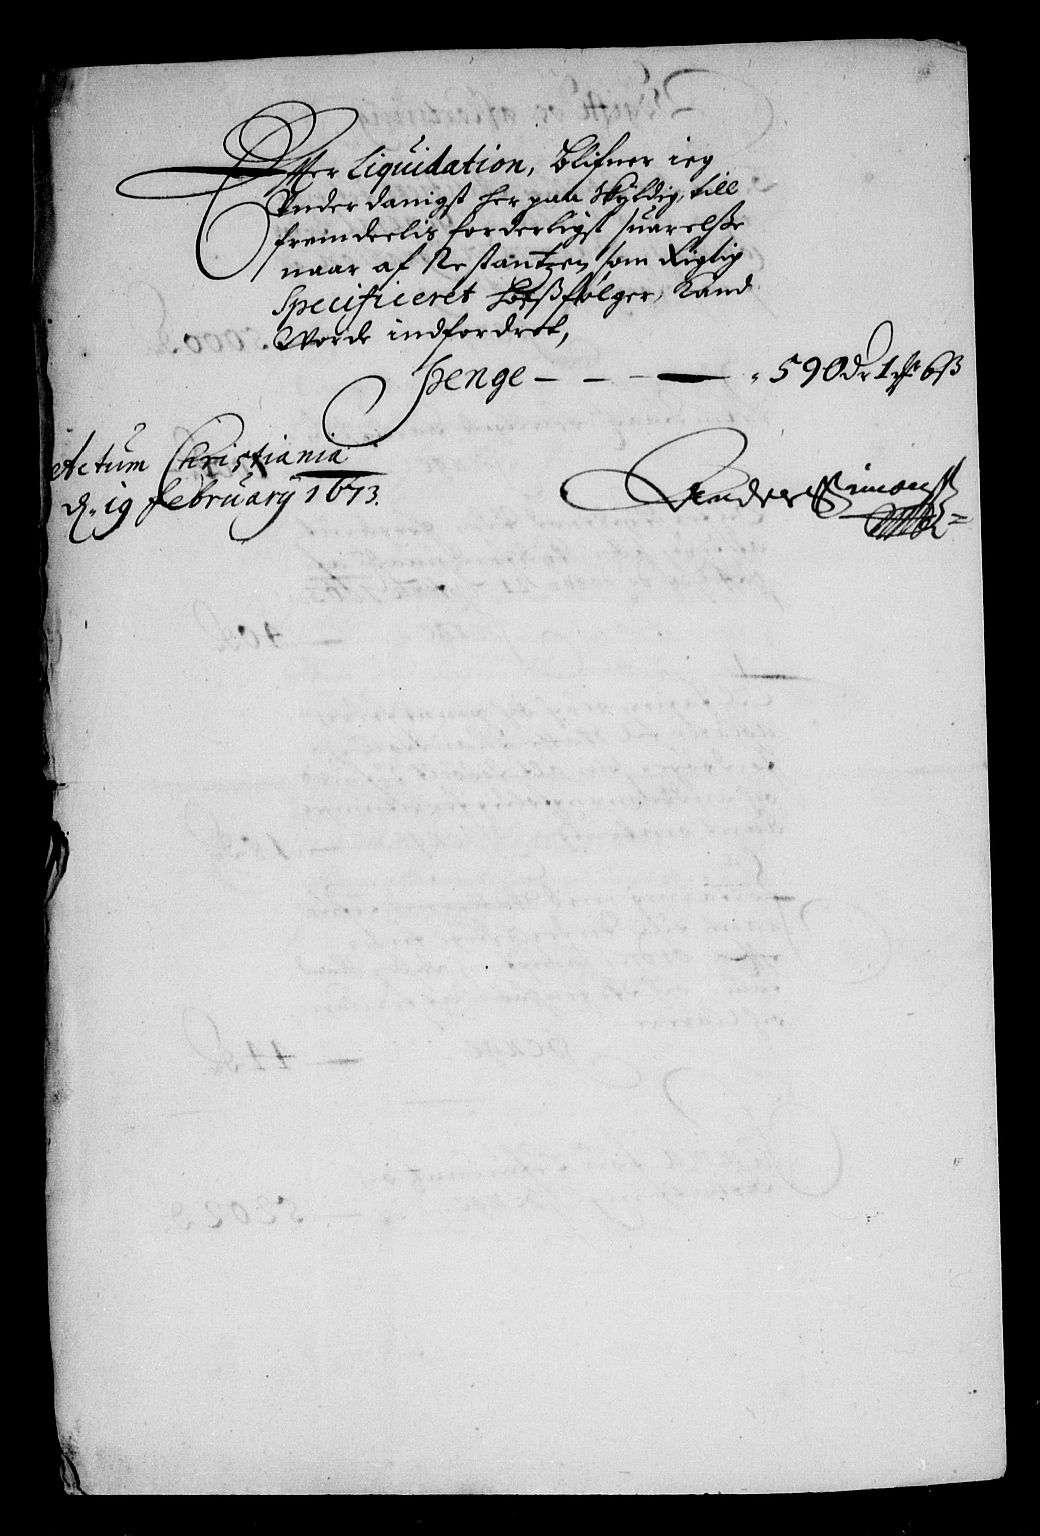 Effter Liquidation, blifuer ieg
Underdanigst her paa skyldig, till
fremdeelis forderligst suarelße
naar af Restantzen som Rigtig
Specificeret hoßfølger, kand
Worde indfordret,
Penge - - - — 590 dr 1 ort 6 ß
Actum Christiania
d. 19 february 1673.
Anders Simonß